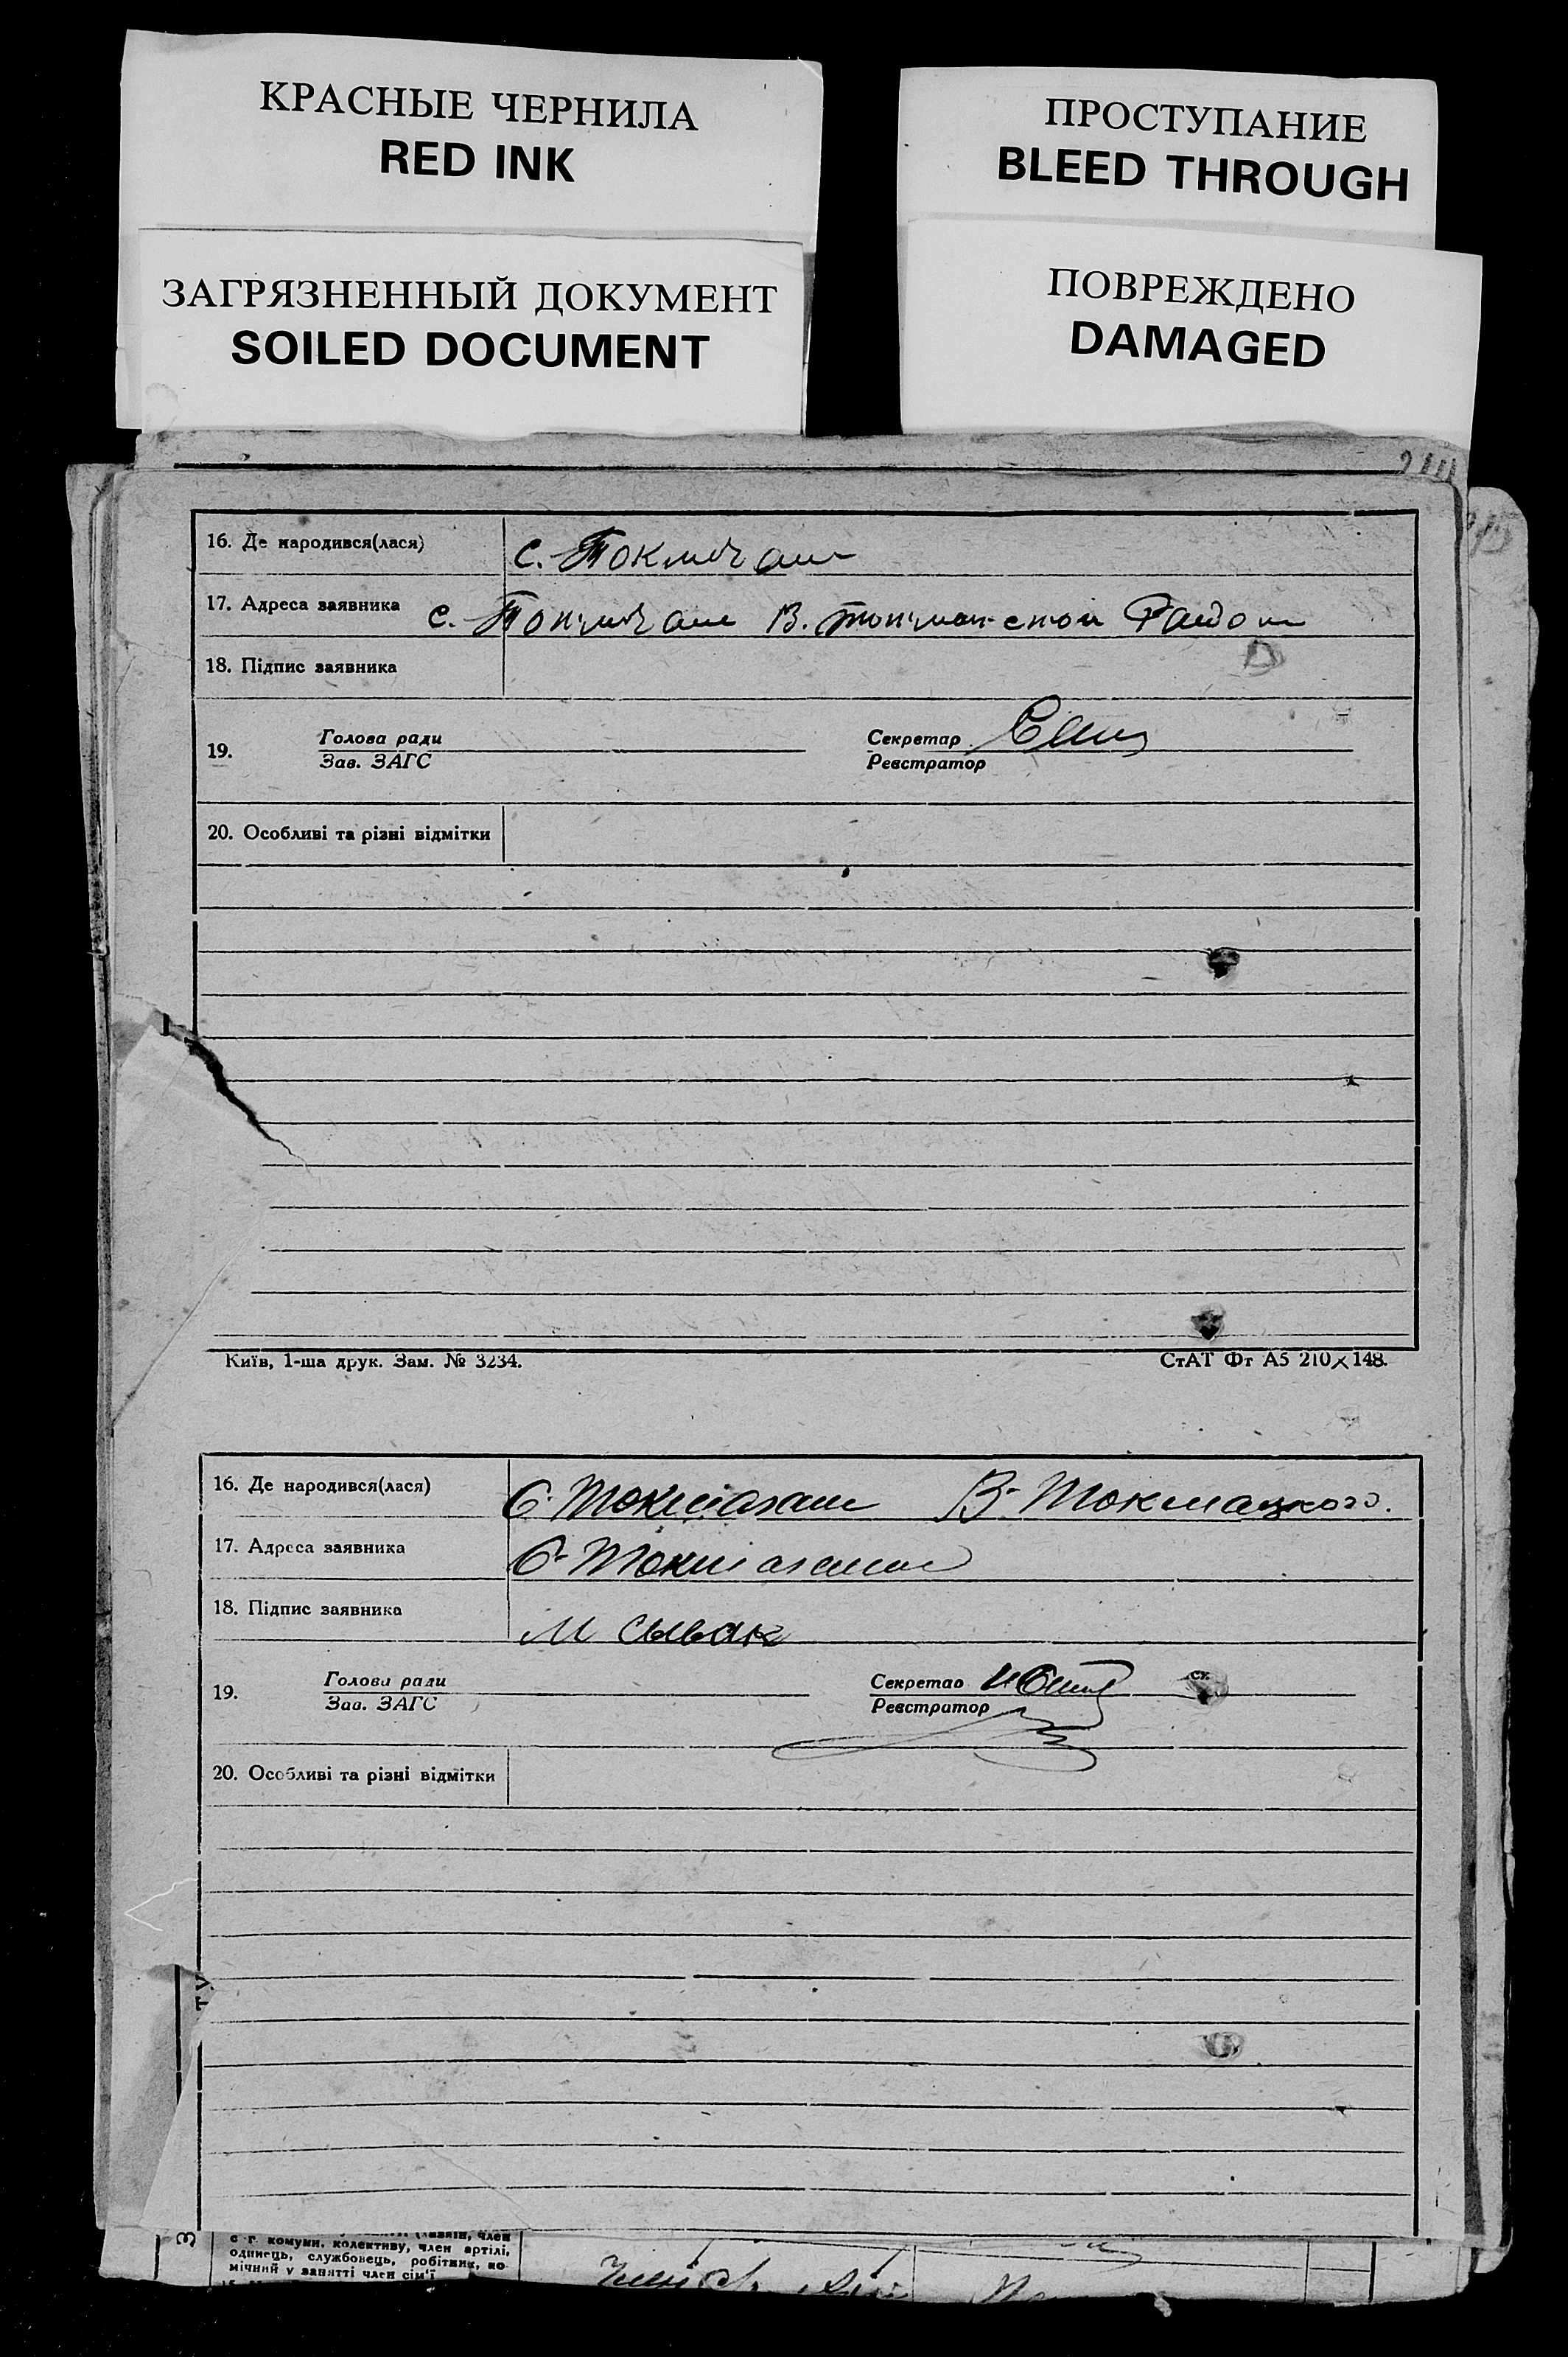 КРАСНЫЕ ЧЕРНИЛА
RED INK
ПРОСТУПАНИЕ
BLEED THROUGH
ЗАГРЯЗНЕННЫЙ ДОКУМЕНТ
SOILED DOCUMENT
ПОВРЕЖДЕНО
DAMAGED
16. Де народився(лася)
с.
17. Адреса заявника с. В.
18. Підпис заявника
19. Голова ради Секретар
Зав. ЗАГС Реєстратор
20. Особливі та різні відмітки
Київ, 1-ша друк. Зам. № 3234. СтАТ Фт А5 210×148.
16. Де народився(лася) С. В-Токмацкого.
17. Адреса заявника С.
18. Підпис заявника М Сывак
19. Голова ради Секретар
Зав. ЗАГС Реєстратор
20. Особливі та різні відмітки
с г. комуни, колективу, член артілі,
одинець, службовець, робітник, по
мічний у занятті член сім'ї